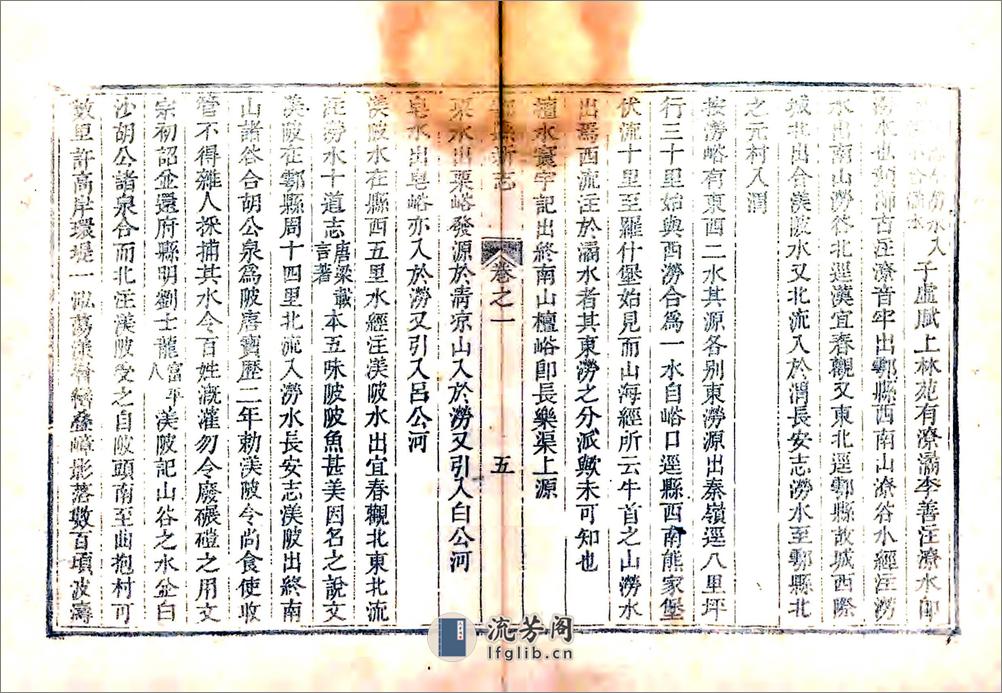 水入子虛賦上林苑有潦潏李善注潦水卽
澇水也師古注潦音牢出鄠縣西南山潦谷水經注澇
水出南山澇谷北逕漢宜春觀又東北逕鄠縣故城西際
城北出合渼陂水又北流入於渭長安志澇水至鄠縣北
之元村入渭
按澇峪有東西二水其源各別東澇源出秦嶺逕八里坪
行三十里始與西澇合爲一水自峪口逕縣西南熊家堡
伏流十里至羅什堡始見而山海經所云牛首之山澇水
出焉西流注於潏水者其東澇之分派歟未可知也
檀水寰宇記出終南山檀峪卽長樂渠上源
鄠縣新志 卷之一 五
栗水出栗峪發源於淸凉山入於澇又引入白公河
皂水出皂峪亦入於澇又引入呂公河
渼陂水在縣西五里水經注渼陂水出宜春觀北東北流
注澇水十道志唐梁載言著本五味陂陂魚甚美因名之說文
渼陂在鄠縣周十四里北流入澇水長安志渼陂出終南
山諸谷合胡公泉爲陂唐寶歷二年勅渼陂令尙食使收
管不得雜人採捕其水令百姓漑灌勿令廢碾磑之用文
宗初詔並還府縣明劉士龍富平人渼陂記山谷之水並白
沙胡公諸泉合而北注渼陂受之自陂頭南至曲抱村可
數里許高岸環堤一泓蕩漾層巒叠嶂影落數百頃波濤
流芳阁
lfglib.cn